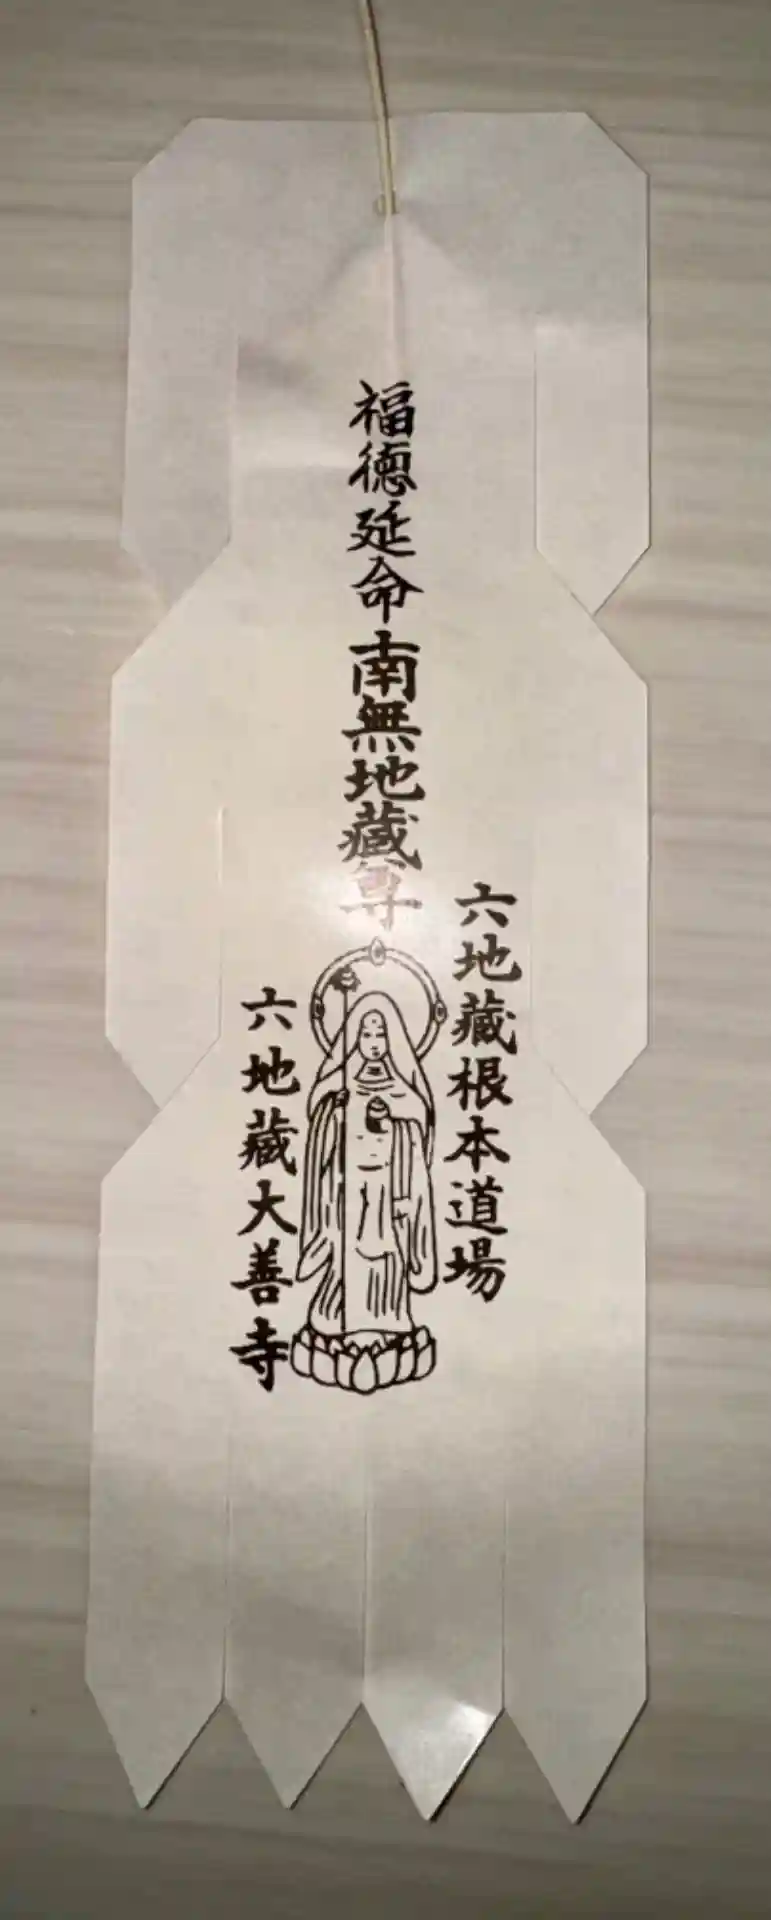 六地藏根本道場
福徳延命南無地藏尊
六地藏大善寺